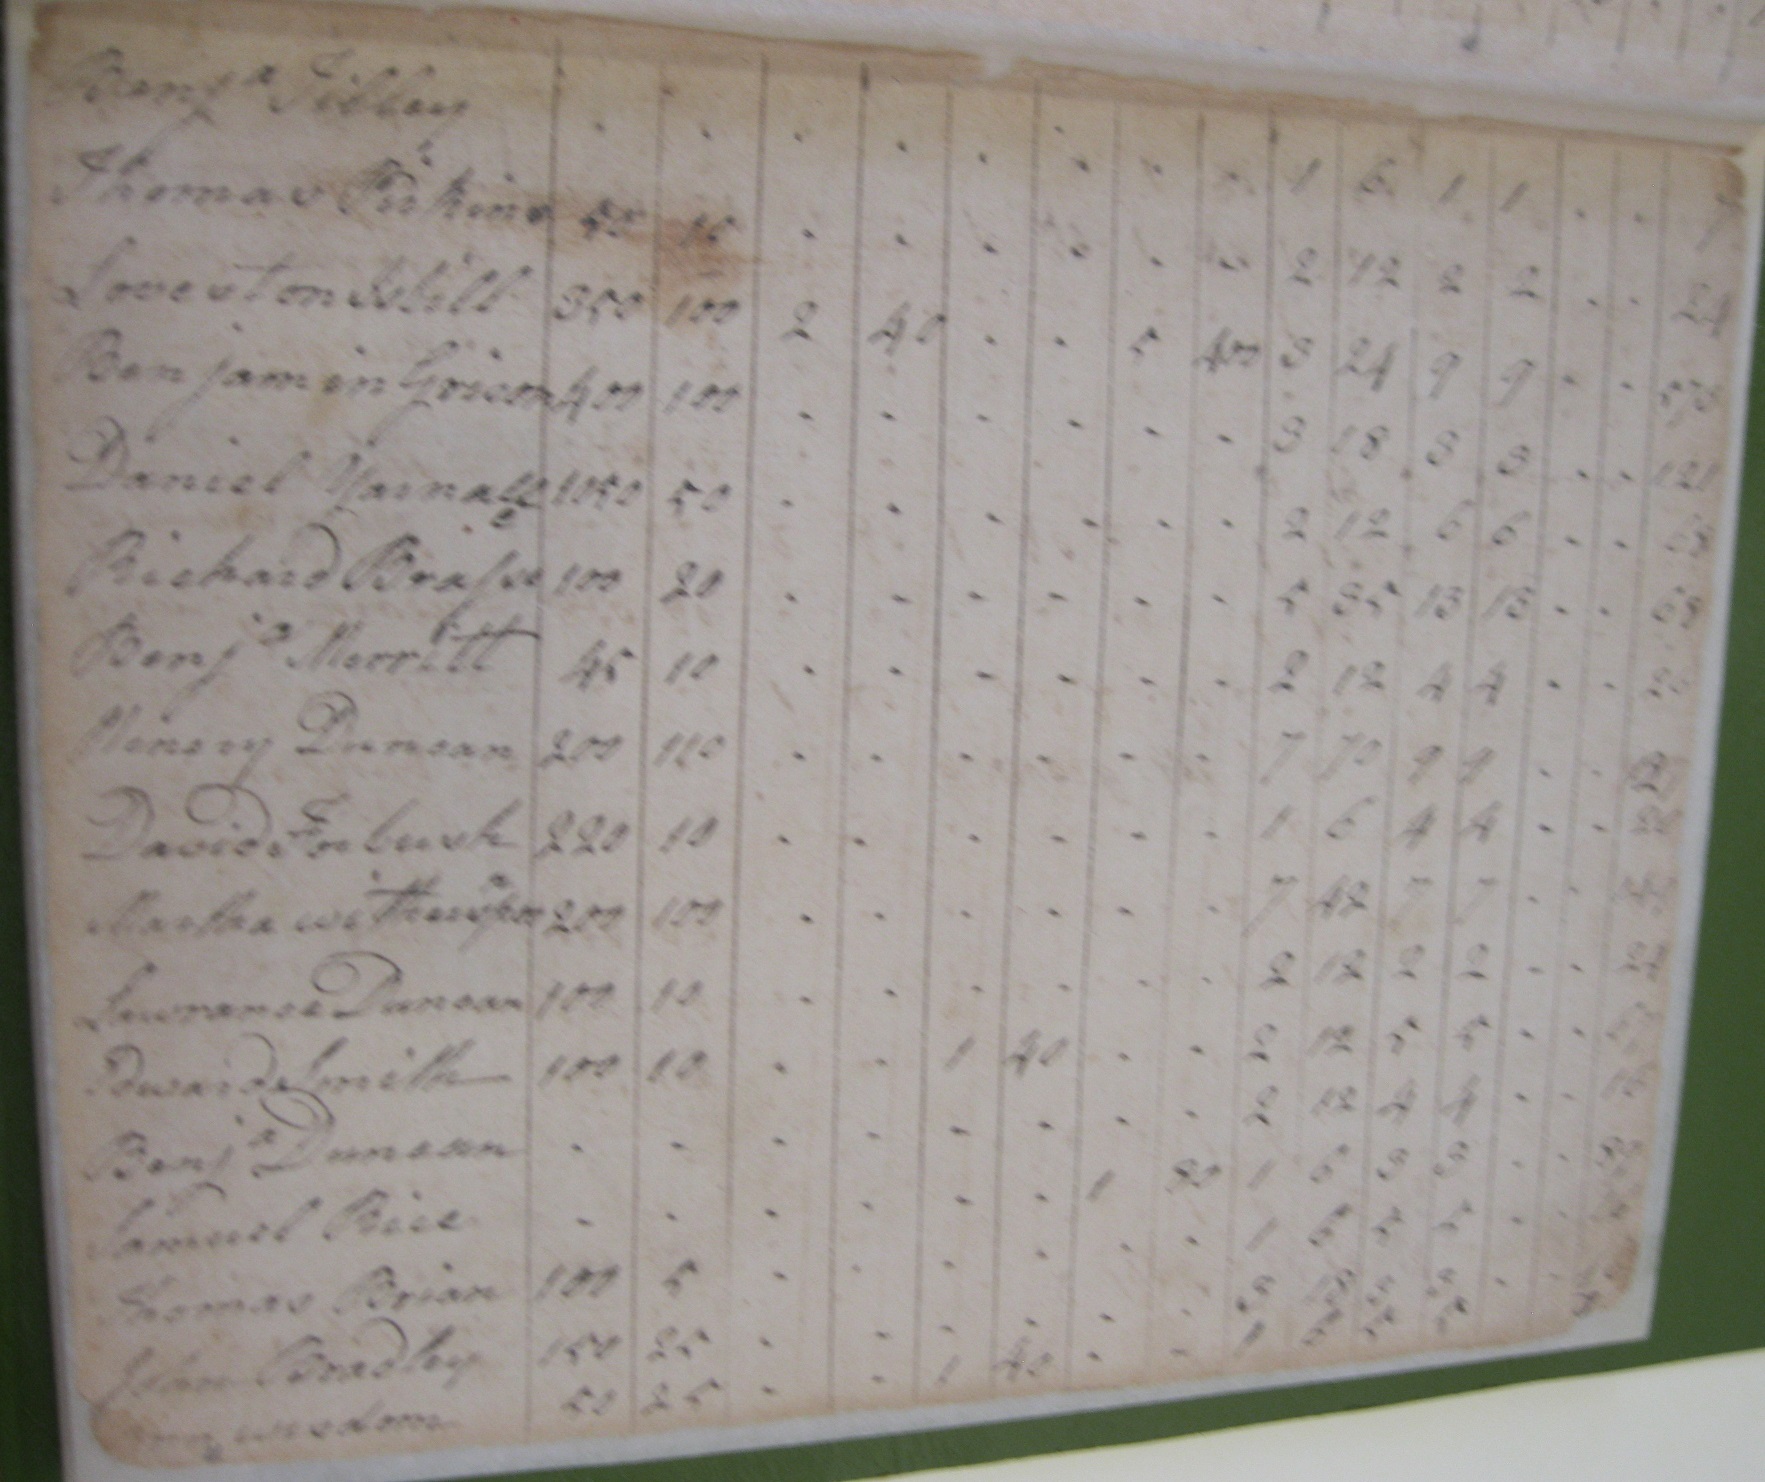 Benja Sibley . . . . . . . . 1 6 1 1 . .
Thomas Pirkins 50 10 . . . . . . 2 12 2 2 . . 24
Loveston Still 350 100 2 40 . . 5 400 3 24 9 9 . . 573
Benjamin Grison 400 100 . . . . . . 3 18 3 3 . . 121
Daniel Yarnall 1050 50 . . . . . . 2 12 6 6 . . 68
Richard 100 20 . . . . . . 5 35 13 13 . . 68
Benja Merritt 45 10 . . . . . . 2 12 4 4 . .
Henery Duncan 200 110 . . . . . . 7 70 9 9 . .
David Forbush 220 10 . . . . . . 1 6 4 4 . . 20
Martha 200 100 . . . . . . 7 42 7 7 . .
Lawrance Duncan 100 10 . . . . . . 2 12 2 2 . . 24
Edward Smith 100 10 . . 1 40 . . 2 12 5 5 . .
Benja Duncan . . . . . . . . 2 12 4 4 . . 16
Samuel Rice . . . . . . 1 30 1 6 3 3 . .
Thomas Brian 100 5 . . . . . . 1 6 5 5 . .
John Bradley 150 25 . . . . . . 3 18 3 3 . .
wisdom 50 25 . . 1 40 . . 1 6 5 5